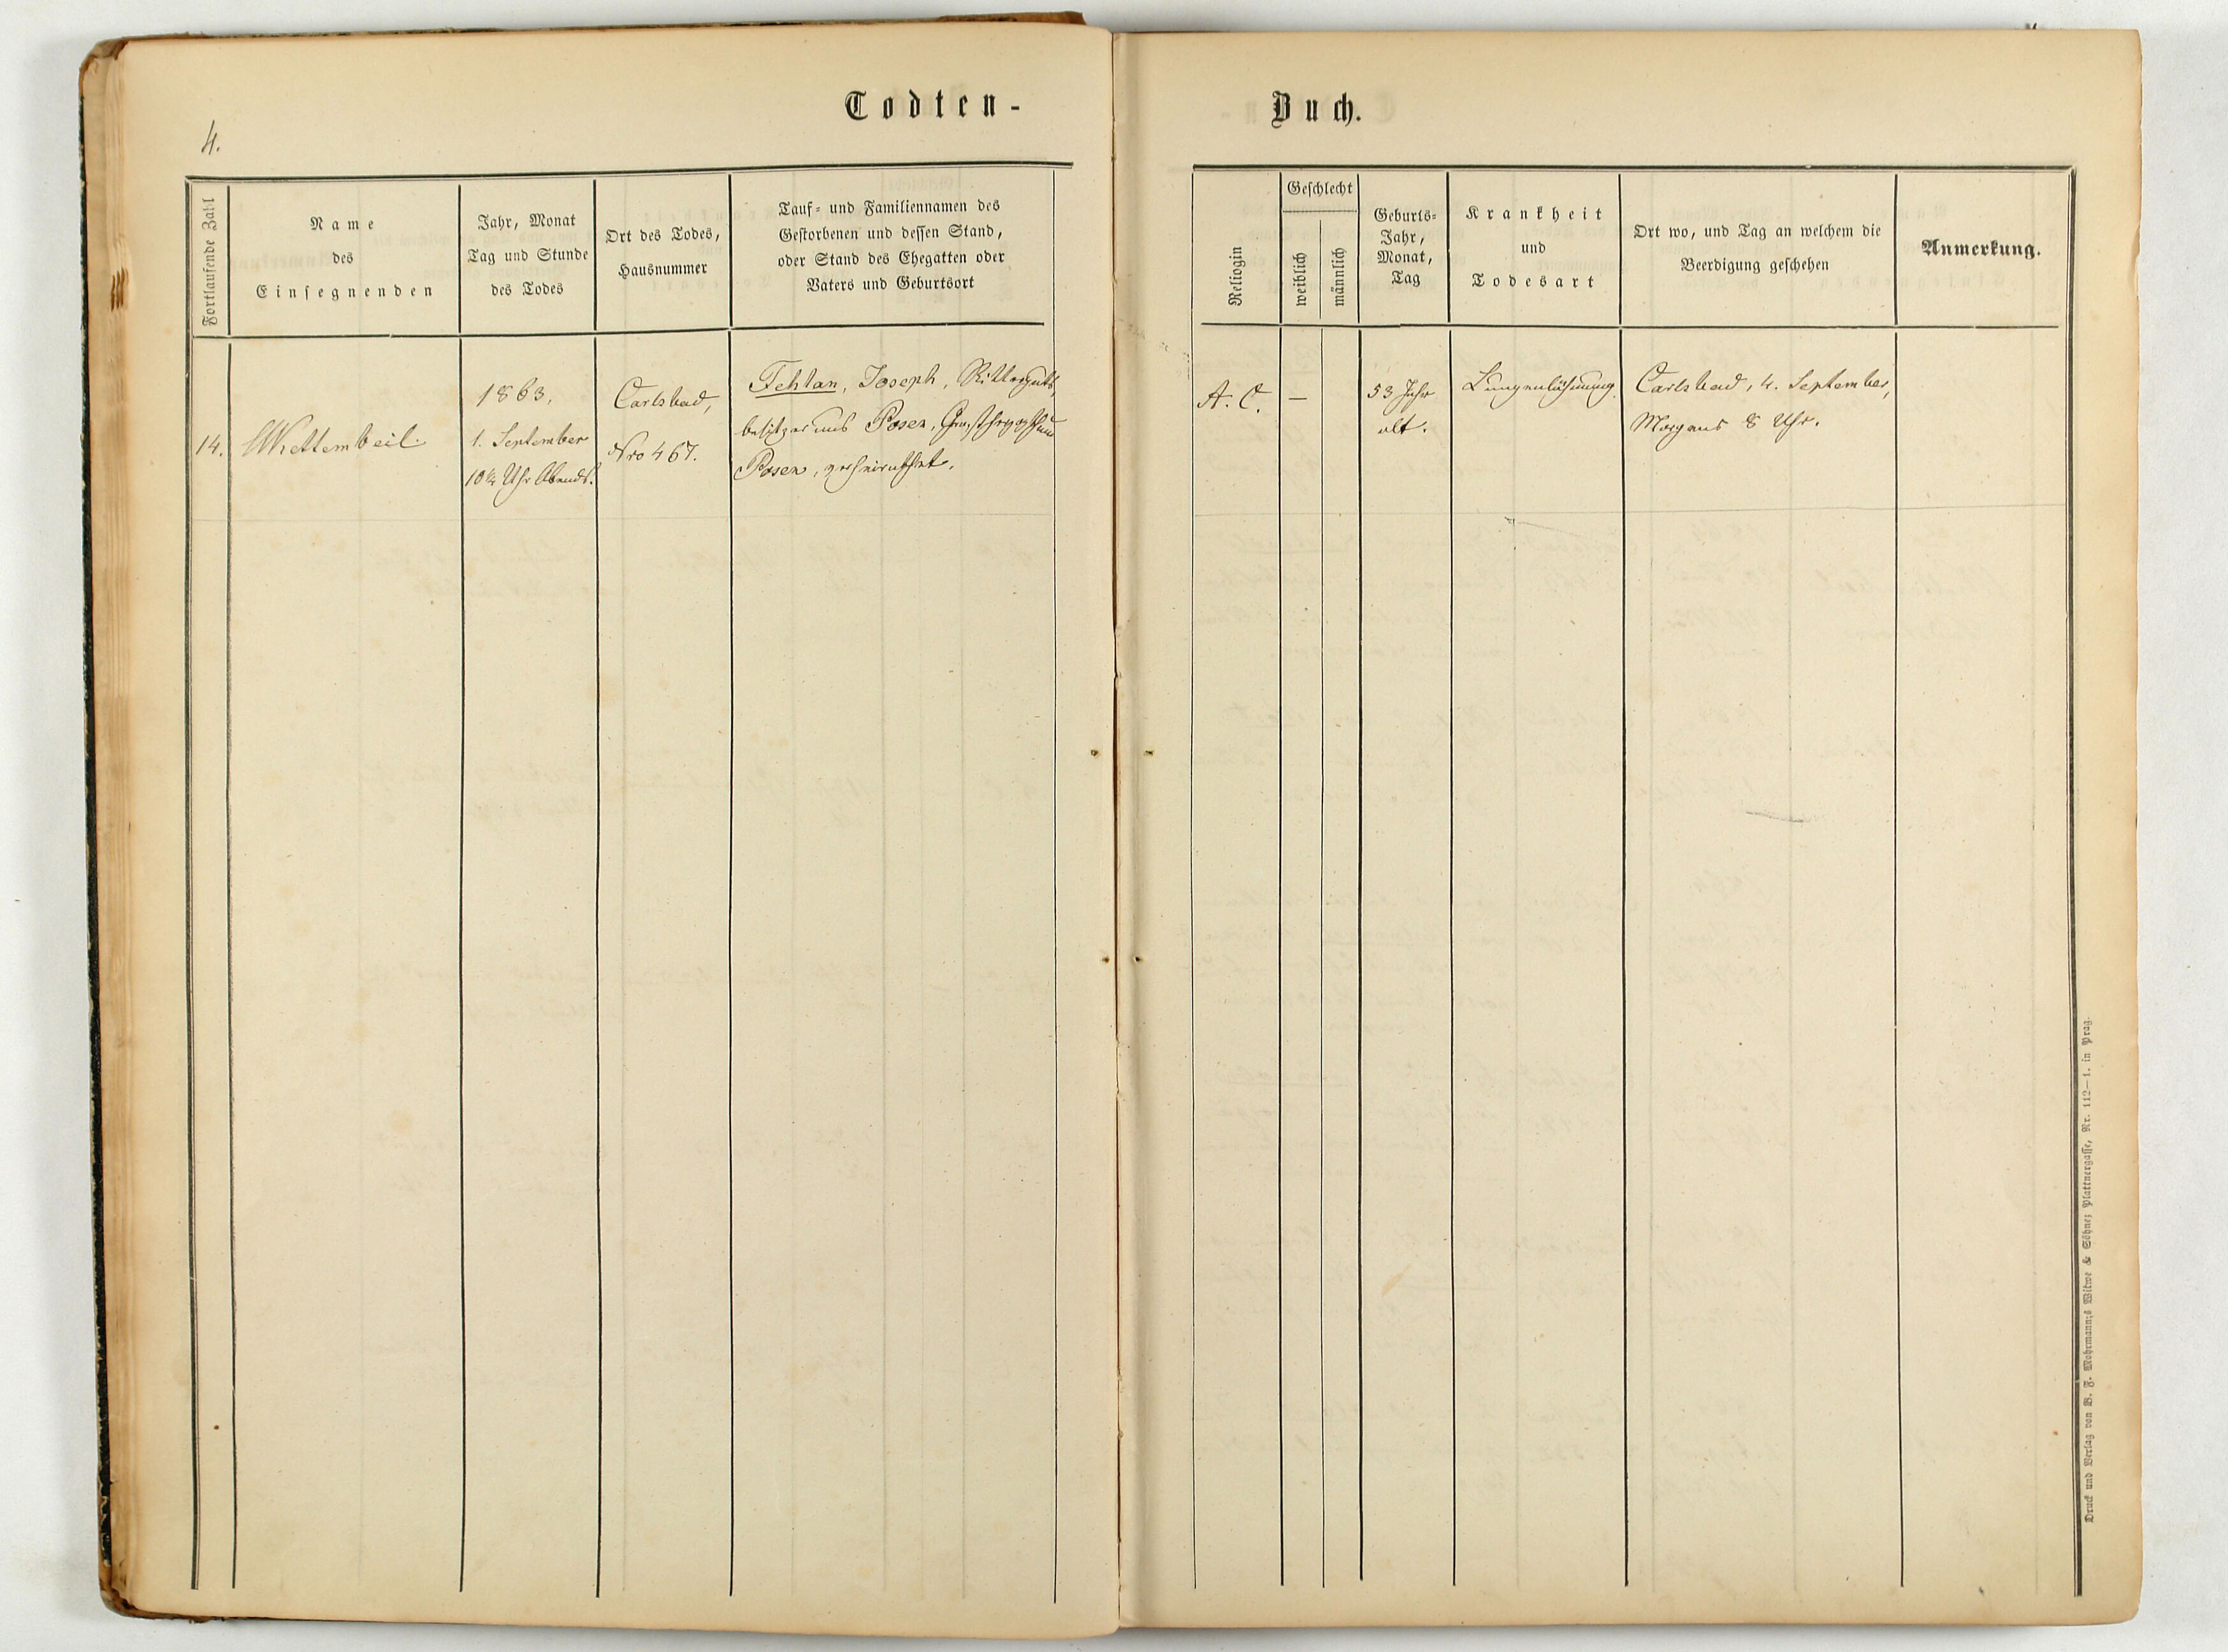 Todten-
Buch.
4.
Fortlaufende Zahl
Name
des
Einsegnenden
Jahr, Monat
Tag und Stunde
des Todes
Ort des Todes,
Hausnummer
Tauf- und Familiennamen des
Gestorbenen und dessen Stand,
oder Stand des Ehegatten oder
Vaters und Geburtsort
Religion
Geschlecht
weiblich
männlich
Geburts-
Jahr,
Monat,
Tag
Krankheit
und
Todesart
Ort wo, und Tag an welchem die
Beerdigung geschehen
Anmerkung.
14.
Wettembeil.
1863,
1. September
Uhr Abends.
Carlsbad,
Nro 467.
Fehlan, Joseph, Ritterguts,
besitzer aus Posen, Großherzogthum
Posen, verheirathet.
A. C.
—
53 Jahr
alt.
Lungenlähmung.
Carlsbad, 4. September,
Morgens 8 Uhr.
Druck und Verlag von B. F. Mohrmann;s Witwe & Söhne; Plattnergasse, Nr. 112—1. in Prag.